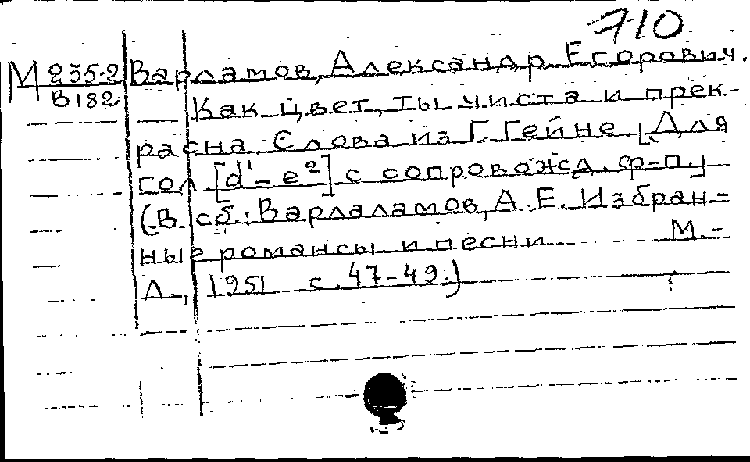 710
М 235-2 Варламов, Александр Егорович.
В182 Как цвет, ты чиста и прек-
расна. Слова из Г. Гейне [Для
гол [d¹-e²] с сопровожд. ф-п.]
(В сб.: Варлаламов, А. Е. Избран-
ные романсы и песни М.-
Л., 1951 с. 47-49.)